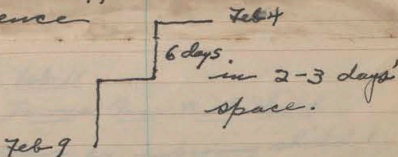 ence
Feb 4
6 days.
in 2-3 days'
space.
Feb 9